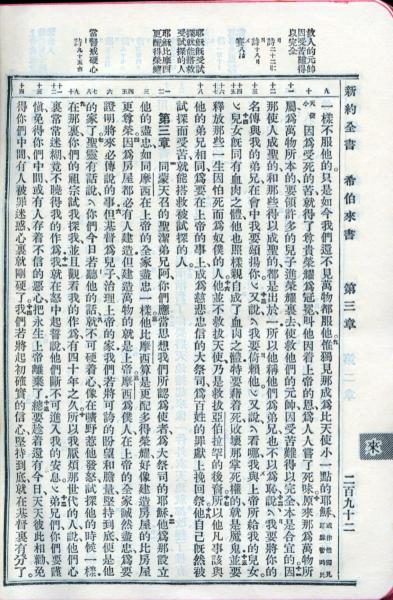 新約全書 希伯來書 第三章 二百九十二
來
救人的元帥因受苦難得以完全
耶穌旣受試探就能搭救受試探的人
耶穌比摩西更配得榮耀
當警戒硬心
一樣不服他的只是如今我們還不見萬物都服他惟獨見那成爲比天使小一點的耶穌
因爲受死的苦就得了尊貴榮耀爲冠冕叫他因着上帝的恩爲人人嘗了死味原來那爲萬物所
屬爲萬物所本的要領許多的兒子進榮耀裏去使救他們的元帥因受苦難得以完全本是合宜的因
那使人成聖的和那些得以成聖的都是出於一所以他稱他們爲弟兄也不以爲恥說我要將你的
名傳與我的弟兄在會中我要頌揚你又說我要倚賴他又說看哪我與上帝所給我的兒女
兒女旣同有血肉之體他也照樣親自成了血肉之體特要藉着死敗壞那掌死權的就是魔鬼並要
釋放那些一生因怕死而爲奴僕的人他並不救拔天使乃是救拔亞伯拉罕的後裔所以他凡事該與
他的弟兄相同爲要在上帝的事上成爲慈悲忠信的大祭司爲百姓的罪獻上挽回祭他自己旣然被
試探而受苦就能搭救被試探的人
第三章 同蒙天召的聖潔弟兄阿你們應當思想我們所認爲使者爲大祭司的耶穌他爲那設立
他的盡忠如同摩西在上帝的全家盡忠一樣他比摩西算是更配多得榮耀好像建造房屋的比房屋
更尊榮因爲房屋都必有人建造但建造萬物的就是上帝摩西爲僕人在上帝的全家誠然盡忠爲要
證明將來必傳說的事但基督爲兒子治理上帝的家我們若將可誇的盼望和膽量堅持到底便是他
的家了聖靈有話說你們今日若聽他的話就不可硬着心像在曠野惹他發怒試探他的時候一樣
在那裏你們的祖宗試我探我並且觀看我的作爲有四十年之久所以我厭煩那世代的人說他們心
裏常常迷糊竟不曉得我的作爲我就在怒中起誓說他們斷不可進入我的安息弟兄們你們要謹
愼免得你們中間或有人存着不信的惡心把永生上帝離棄了總要趁着還有今日天天彼此相勸免
得你們中間有人被罪迷惑心裏就剛硬了我們若將起初確實的信心堅持到底就在基督裏有分了